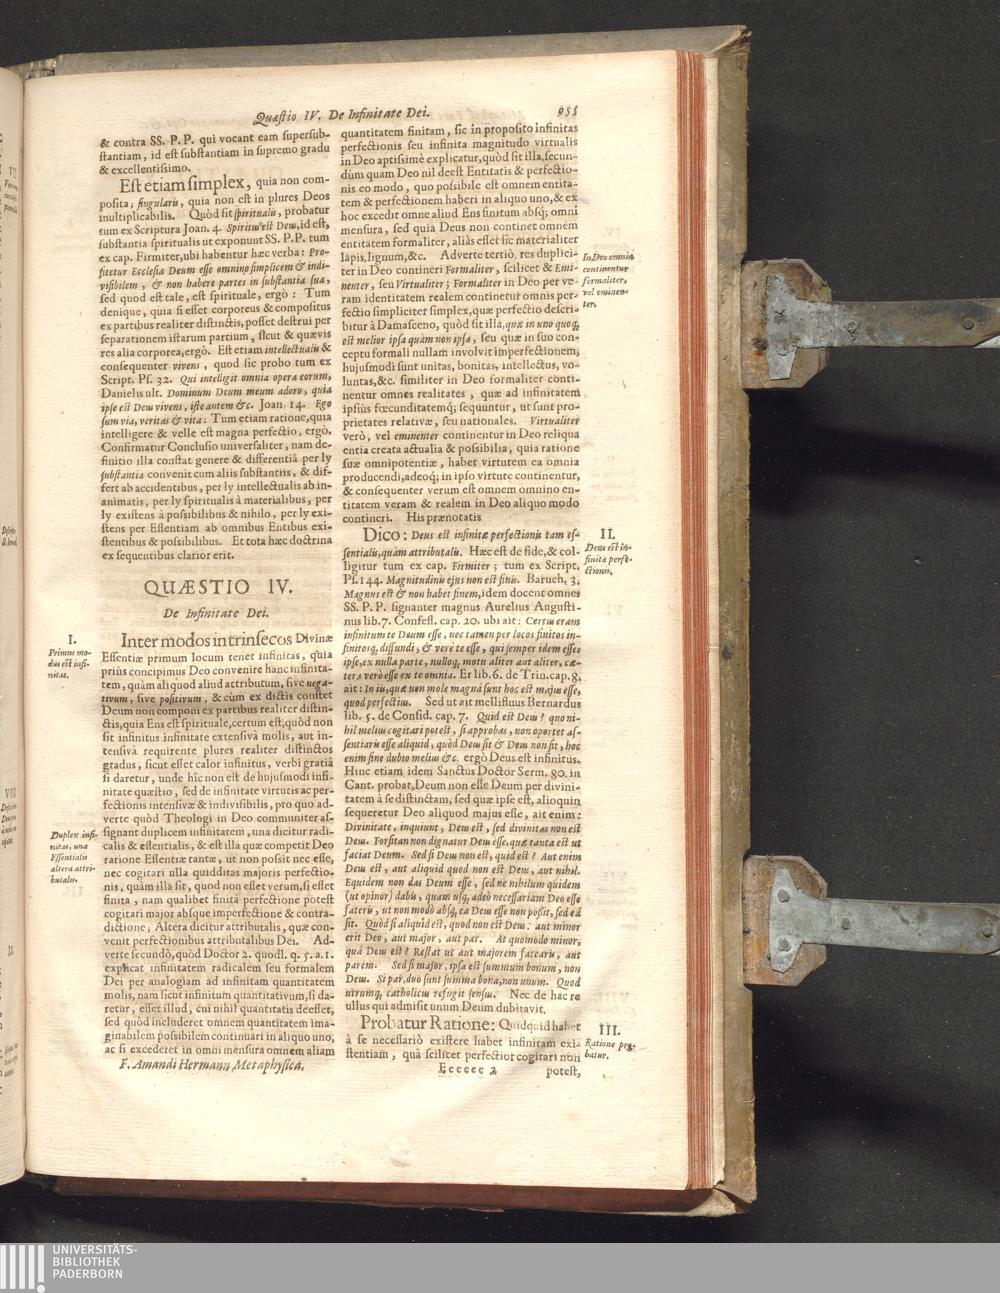 Quæstio IV. De Infinitate Dei.
955
& contra SS. P.P. qui vocant eam supersub-
stantiam, id est substantiam in supremo gradu
& excellentissimo.
Est etiam simplex, quia non com-
posita; singularis, quia non est in plures Deos
multiplicabilis. Quòd sit spiritualis, probatur
tum ex Scriptura Joan. 4. Spiritus est Deus, id est,
substantia spiritualis ut exponunt SS. P.P. tum
ex cap. Firmiter, ubi habentur hæc verba: Pro-
fitetur Ecclesia Deum esse omnino simplicem & indi-
visibilem, & non habere partes in substantia sua,
sed quod est tale, est spirituale, ergò: Tum
denique, quia si esset corporeus & compositus
ex partibus realiter distinctis, posset destrui per
separationem istarum partium, sicut & quævis
res alia corporea, ergò. Est etiam intellectualis &
consequenter vivens, quod sic probo tum ex
Script. Ps. 32. Qui intelligit omnia opera eorum,
Danielis ult. Dominum Deum meum adoro, quia
ipse est Deus vivens, iste autem &c. Joan 14. Ego
sum via, veritas & vita: Tum etiam ratione, quia
intelligere & velle est magna perfectio, ergò.
Confirmatur Conclusio universaliter, nam de-
finitio illa constat genere & differentiâ per ly
substantia convenit cum aliis substantiis, & dif-
fert ab accidentibus, per ly intellectualis ab in-
animatis, per ly spiritualis à materialibus, per
ly existens à possibilibus & nihilo, per ly exi-
stens per Essentiam ab omnibus Entibus exi-
stentibus & possibilibus. Et tota hæc doctrina
ex sequentibus clarior erit.
QUÆSTIO IV.
De Infinitate Dei.
I.
Primus mo-
dus est infi-
nitas.
Inter modos intrinsecos Divinæ
Essentiæ primum locum tenet infinitas, quia
priùs concipimus Deo convenire hanc infinita-
tem, quàm aliquod aliud attributum, sive nega-
tivum, sive positivum, & cùm ex dictis constet
Deum non componi ex partibus realiter distin-
ctis, quia Ens est spirituale, certum est, quòd non
sit infinitus infinitate extensivâ molis, aut in-
tensivâ requirente plures realiter distinctos
gradus, sicut esset calor infinitus, verbi gratiâ
si daretur, unde hîc non est de hujusmodi infi-
nitate quæstio, sed de infinitate virtutis ac per-
fectionis intensivæ & indivisibilis, pro quo ad-
verte quòd Theologi in Deo communiter as-
signant duplicem infinitatem, una dicitur radi-
calis & essentialis, & est illa quæ competit Deo
ratione Essentiæ tantæ, ut non possit nec esse,
nec cogitari ulla quidditas majoris perfectio-
nis, quàm illa sit, quod non esset verum, si esset
finita, nam qualibet finitâ perfectione potest
cogitari major absque imperfectione & contra-
dictione; Altera dicitur attributalis, quæ con-
venit perfectionibus attributalibus Dei. Ad-
verte secundò, quòd Doctor 2. quodl. q. 5. a. 1.
explicat infinitatem radicalem seu formalem
Dei per analogiam ad infinitam quantitatem
molis, nam sicut infinitum quantitativum, si da-
retur, esset illud, cui nihil quantitatis deesset,
sed quòd includeret omnem quantitatem ima-
ginabilem possibilem continuari in aliquo uno,
ac si excederet in omni mensura omnem aliam
Duplex infi-
nitas, una
Essentialis
altera attri-
butalis.
F. Amandi Hermann Metaphysica.
quantitatem finitam, sic in proposito infinitas
perfectionis seu infinita magnitudo virtualis
in Deo aptissimè explicatur, quòd sit illa, secun-
dùm quam Deo nil deest Entitatis & perfectio-
nis eo modo, quo possibile est omnem entita-
tem & perfectionem haberi in aliquo uno, & ex
hoc excedit omne aliud Ens finitum absq; omni
mensura, sed quia Deus non continet omnem
entitatem formaliter, aliàs esset sic materialiter
lapis, lignum, &c. Adverte tertiò, res duplici-
ter in Deo contineri Formaliter, scilicet & Emi-
nenter, seu Virtualiter; Formaliter in Deo per ve-
ram identitatem realem continetur omnis per-
fectio simpliciter simplex, quæ perfectio descri-
bitur à Damasceno, quòd sit illa, quæ in uno quoq,
est melior ipsa quàm non ipsa, seu quæ in suo con-
ceptu formali nullam involvit imperfectionem,
hujusmodi sunt unitas, bonitas, intellectus, vo-
luntas, &c. similiter in Deo formaliter conti-
nentur omnes realitates, quæ ad infinitatem
ipsius fœcunditatemq; sequuntur, ut sunt pro-
prietates relativæ, seu nationales. Virtualiter
verò, vel eminenter continentur in Deo reliqua
entia creata actualia & possibilia, quia ratione
suæ omnipotentiæ, habet virtutem ea omnia
producendi, adeoq; in ipso virtute continentur,
& consequenter verum est omnem omnino en-
titatem veram & realem in Deo aliquo modo
contineri. His prænotatis
In Deo omnia
continentur
formaliter,
vel eminen-
ter.
Dico: Deus est infinitæ perfectionis tam es-
sentialis, quàm attributalis. Hæc est de fide, & col-
ligitur tum ex cap. Firmiter; tum ex Script.
Ps. 144. Magnitudinis ejus non est finis. Baruch. 3.
Magnus est & non habet finem, idem docent omnes
SS. P.P. signanter magnus Aurelius Augusti-
nus lib. 7. Confess. cap. 20. ubi ait: Certus eram
infinitum te Deum esse, nec tamen per locos finitos in-
finitosq, diffundi, & vere te esse, qui semper idem esses
ipse, ex nulla parte, nulloq, motu aliter aut aliter, cæ-
tera verò esse ex te omnia. Et lib. 6. de Trin. cap. 8.
ait: In iis, quæ non mole magnâ sunt hoc est majus esse,
quod perfectius. Sed ut ait mellifluus Bernardus
lib. 5. de Consid. cap. 7. Quid est Deus? quo ni-
hil melius cogitari potest, si approbas, non oportet as-
sentiaris esse aliquid, quòd Deus sit & Deus non sit, hoc
enim sine dubio melius &c. ergò Deus est infinitus.
Hinc etiam idem Sanctus Doctor Serm. 80. in
Cant. probat, Deum non esse Deum per divini-
tatem à se distinctam, sed quæ ipse est, alioquin
sequeretur Deo aliquod majus esse, ait enim:
Divinitate, inquiunt, Deus est, sed divinitas non est
Deus. Forsitan non dignatur Deus esse, quæ tanta est ut
faciat Deum. Sed si Deus non est, quid est? Aut enim
Deus est, aut aliquid quod non est Deus, aut nihil.
Equidem non das Deum esse, sed ne nihilum quidem
(ut opinor) dabis, quam usq, adeò necessariam Deo esse
fateris, ut non modò absq, ea Deus esse non possit, sed eâ
sit. Quòd si aliquid est, quod non est Deus: aut minor
erit Deo, aut major, aut par. At quomodo minor,
quâ Deus est? Restat ut aut majorem fatearis, aut
parem. Sed si major, ipsa est summum bonum, non
Deus. Si par, duo sunt summa bona, non unum. Quod
utrumq, catholicus refugit sensus. Nec de hac re
ullus qui admisit unum Deum dubitavit.
II.
Deus est in-
finita perfe-
ctionis.
Probatur Ratione: Quidquid habet
à se necessariò existere habet infinitam exi-
stentiam, quâ scilicet perfectior cogitari non
III.
Ratione pro-
batur.
Eeeeee 2
potest,
UNIVERSITÄTS-
BIBLIOTHEK
PADERBORN